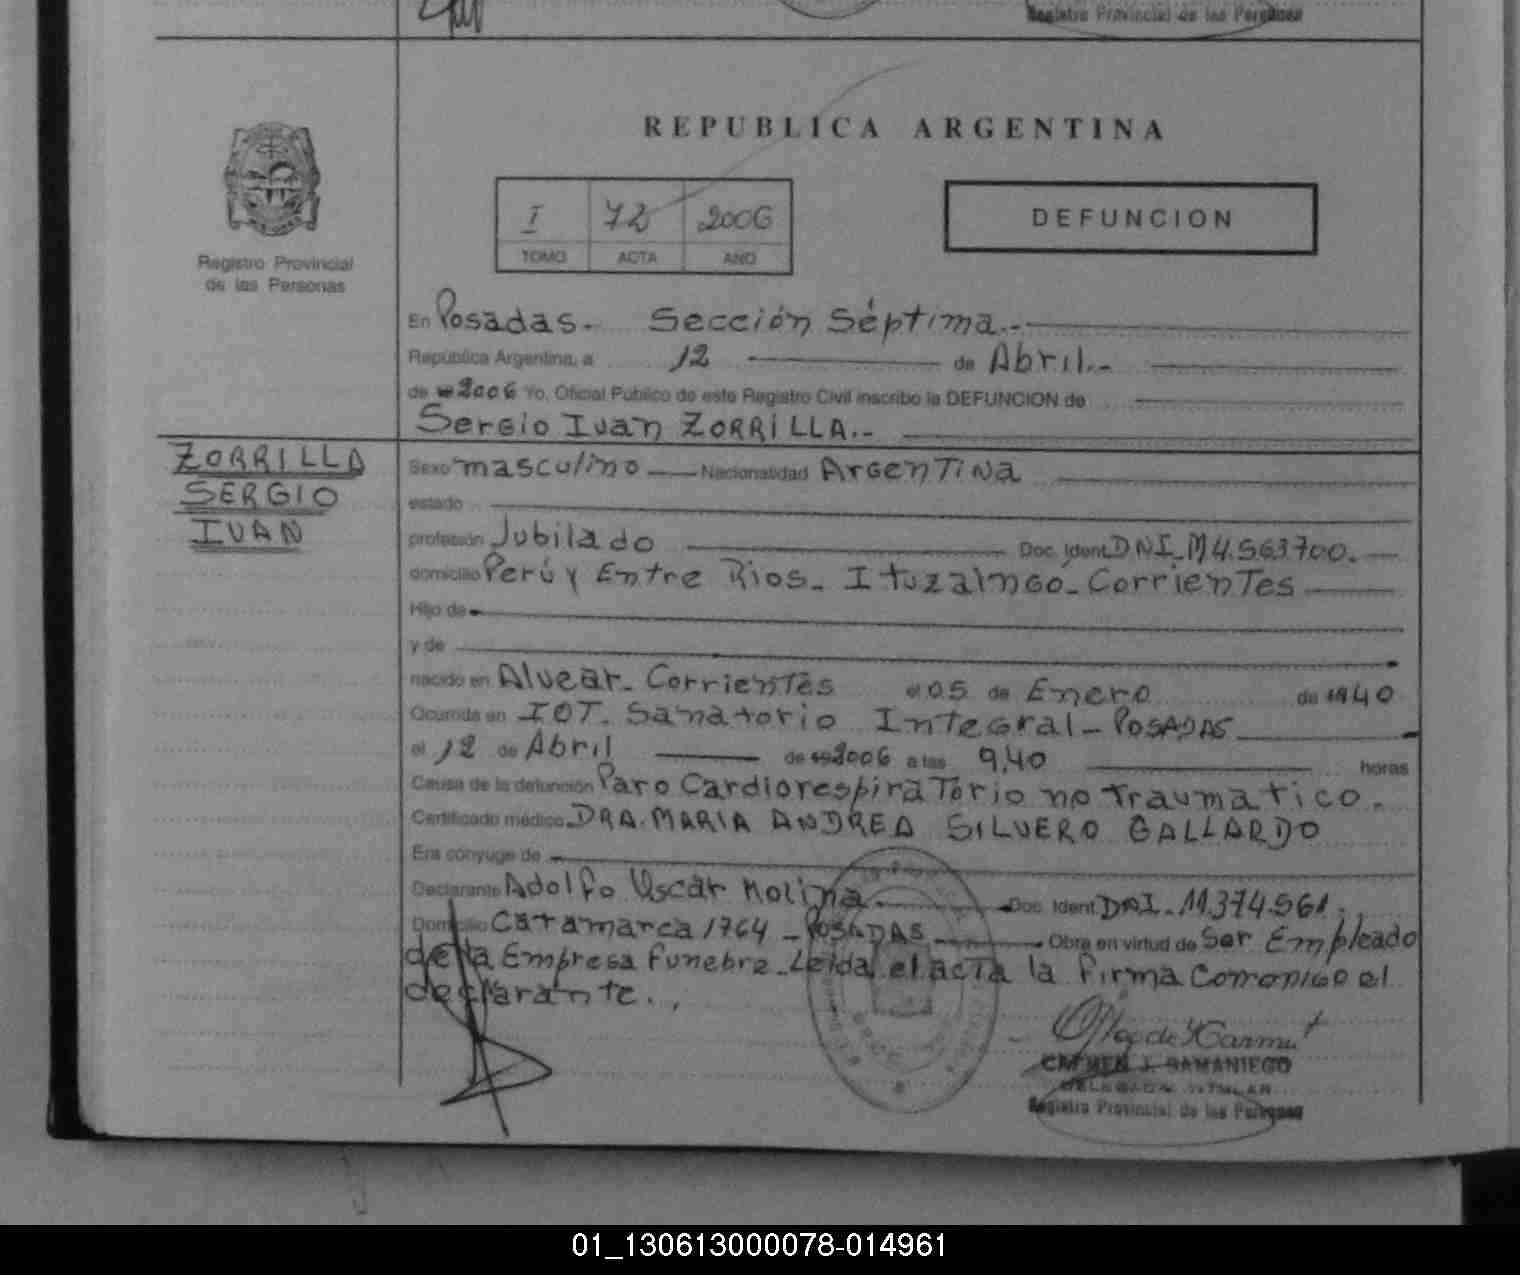 Registro Provincial de las Personas
REPUBLICA ARGENTINA
I 72 2006
TOMO ACTA AÑO
DEFUNCION
Registro Provincial
de las Personas
En Posadas. Sección Séptima.-
República Argentina, a 12 de Abril.-
de 2006 Yo, Oficial Público de este Registro Civil inscribo la DEFUNCION de
Sergio Ivan ZORRILLA.-
ZORRILLA
SERGIO
IVAN
Sexo masculino Nacionalidad ArgenTina
estado
profesión Jubilado Doc. Ident. DNI_M4.563.700.
domicilio Perú y Entre Rios_ Ituzaingó_ CorrienTes
Hijo de
y de
nacido en Alvear_ CorrienTes el 05 de Enero de 1940
Ocurrida en IOT. Sanatorio Integral - POSADAS
el 12 de Abril de 2006 a las 9,40 horas
Causa de la defunción Paro CardiorespiraTorio no traumatico.
Certificado médico DRA. MARIA ANDREA SILVERO GALLARDO
Era cónyuge de
Declarante Adolfo Oscar Molina Doc. Ident. DNI_ 11.374.561.
Domicilio Catamarca 1764 _ POSADAS Obra en virtud de Ser Empleado
de la Empresa funebre_ Leida el acTa la firma conmigo el
declarante.
CARMEN J. SAMANIEGO
DELEGADA TITULAR
Registro Provincial de las Personas
01_130613000078-014961